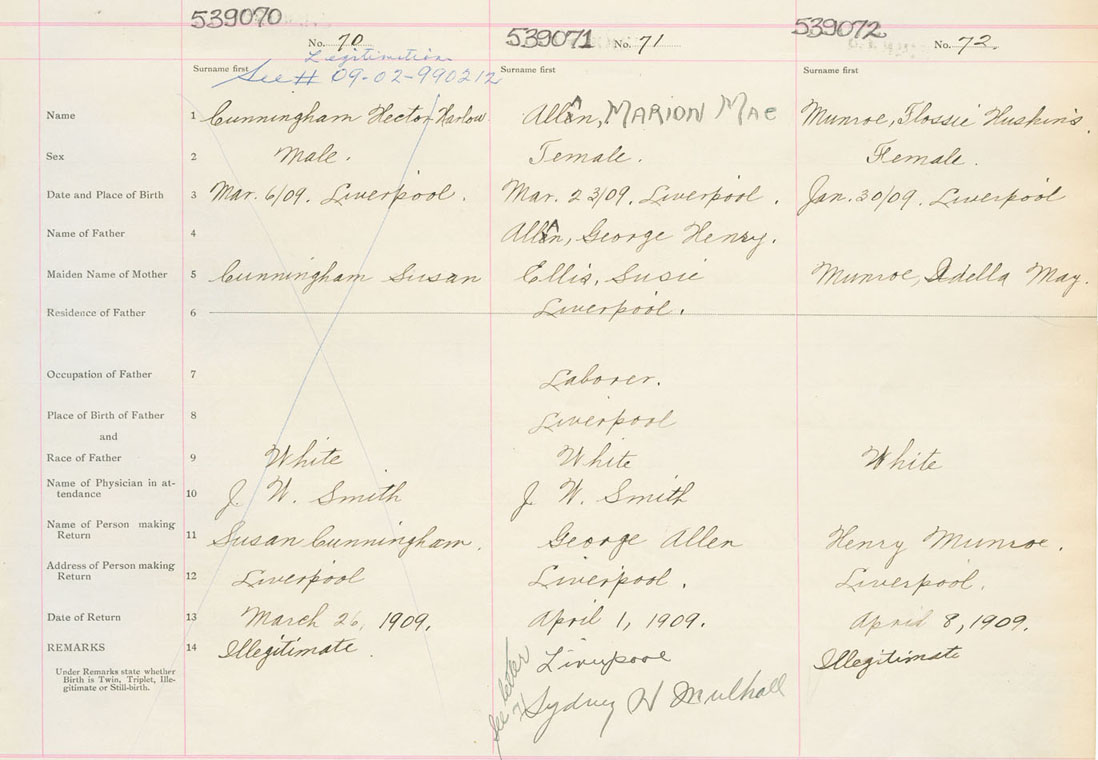 539070
539071
539072
No. 70
No. 71
No. 72.
Legitimation
See # 09-02-990212
Surname first
Surname first
Surname first
Name 1 Cunningham Hector Harlow Allen, MARION MAE Munroe, Flossie Huskins.
Sex 2 Male. Female. Female.
Date and Place of Birth 3 Mar. 6/09. Liverpool. Mar. 23/09. Liverpool. Jan. 30/09. Liverpool
Name of Father 4 Allen, George Henry.
Maiden Name of Mother 5 Cunningham Susan Ellis, Susie Munroe, Idella May.
Residence of Father 6 Liverpool.
Occupation of Father 7 Laborer.
Place of Birth of Father 8 Liverpool
and
Race of Father 9 White White White
Name of Physician in at-
tendance 10 J. W. Smith J. W. Smith
Name of Person making
Return 11 Susan Cunningham. George Allen Henry Munroe.
Address of Person making
Return 12 Liverpool Liverpool. Liverpool.
Date of Return 13 March 26, 1909. April 1, 1909. April 8, 1909.
REMARKS 14 Illegitimate Liverpool Illegitimate
Under Remarks state whether
Birth is Twin, Triplet, Ille-
gitimate or Still-birth.
See letter
Sydney W Mulhall